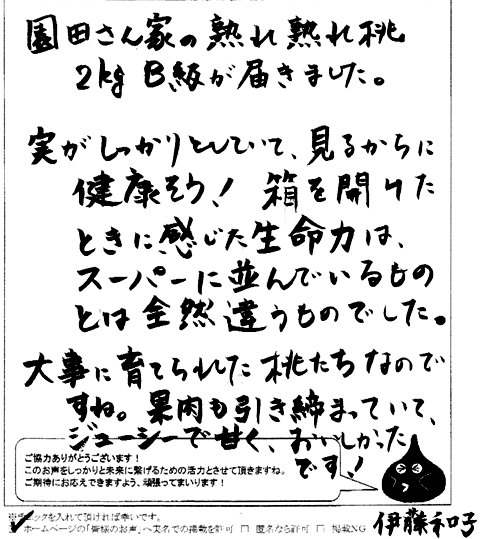 園田さん家の熟れ熟れ桃
2kg B級が届きました。
実がしっかりとしていて、見るからに
健康そう！ 箱を開けた
ときに感じた生命力は、
スーパーに並んでいるもの
とは全然違うものでした。
大事に育てられた桃たちなので
すね。果肉も引き締まっていて、
ジューシーで甘く、おいしかった
です！
ご協力ありがとうございます！
このお声をしっかりと未来に繋げるための活力とさせて頂きますね。
ご期待にお応えできますよう、頑張ってまいります！
チェックを入れて頂ければ幸いです。
ホームページの「皆様のお声」へ実名での掲載を許可 □ 匿名なら許可 □ 掲載NG
伊藤和子